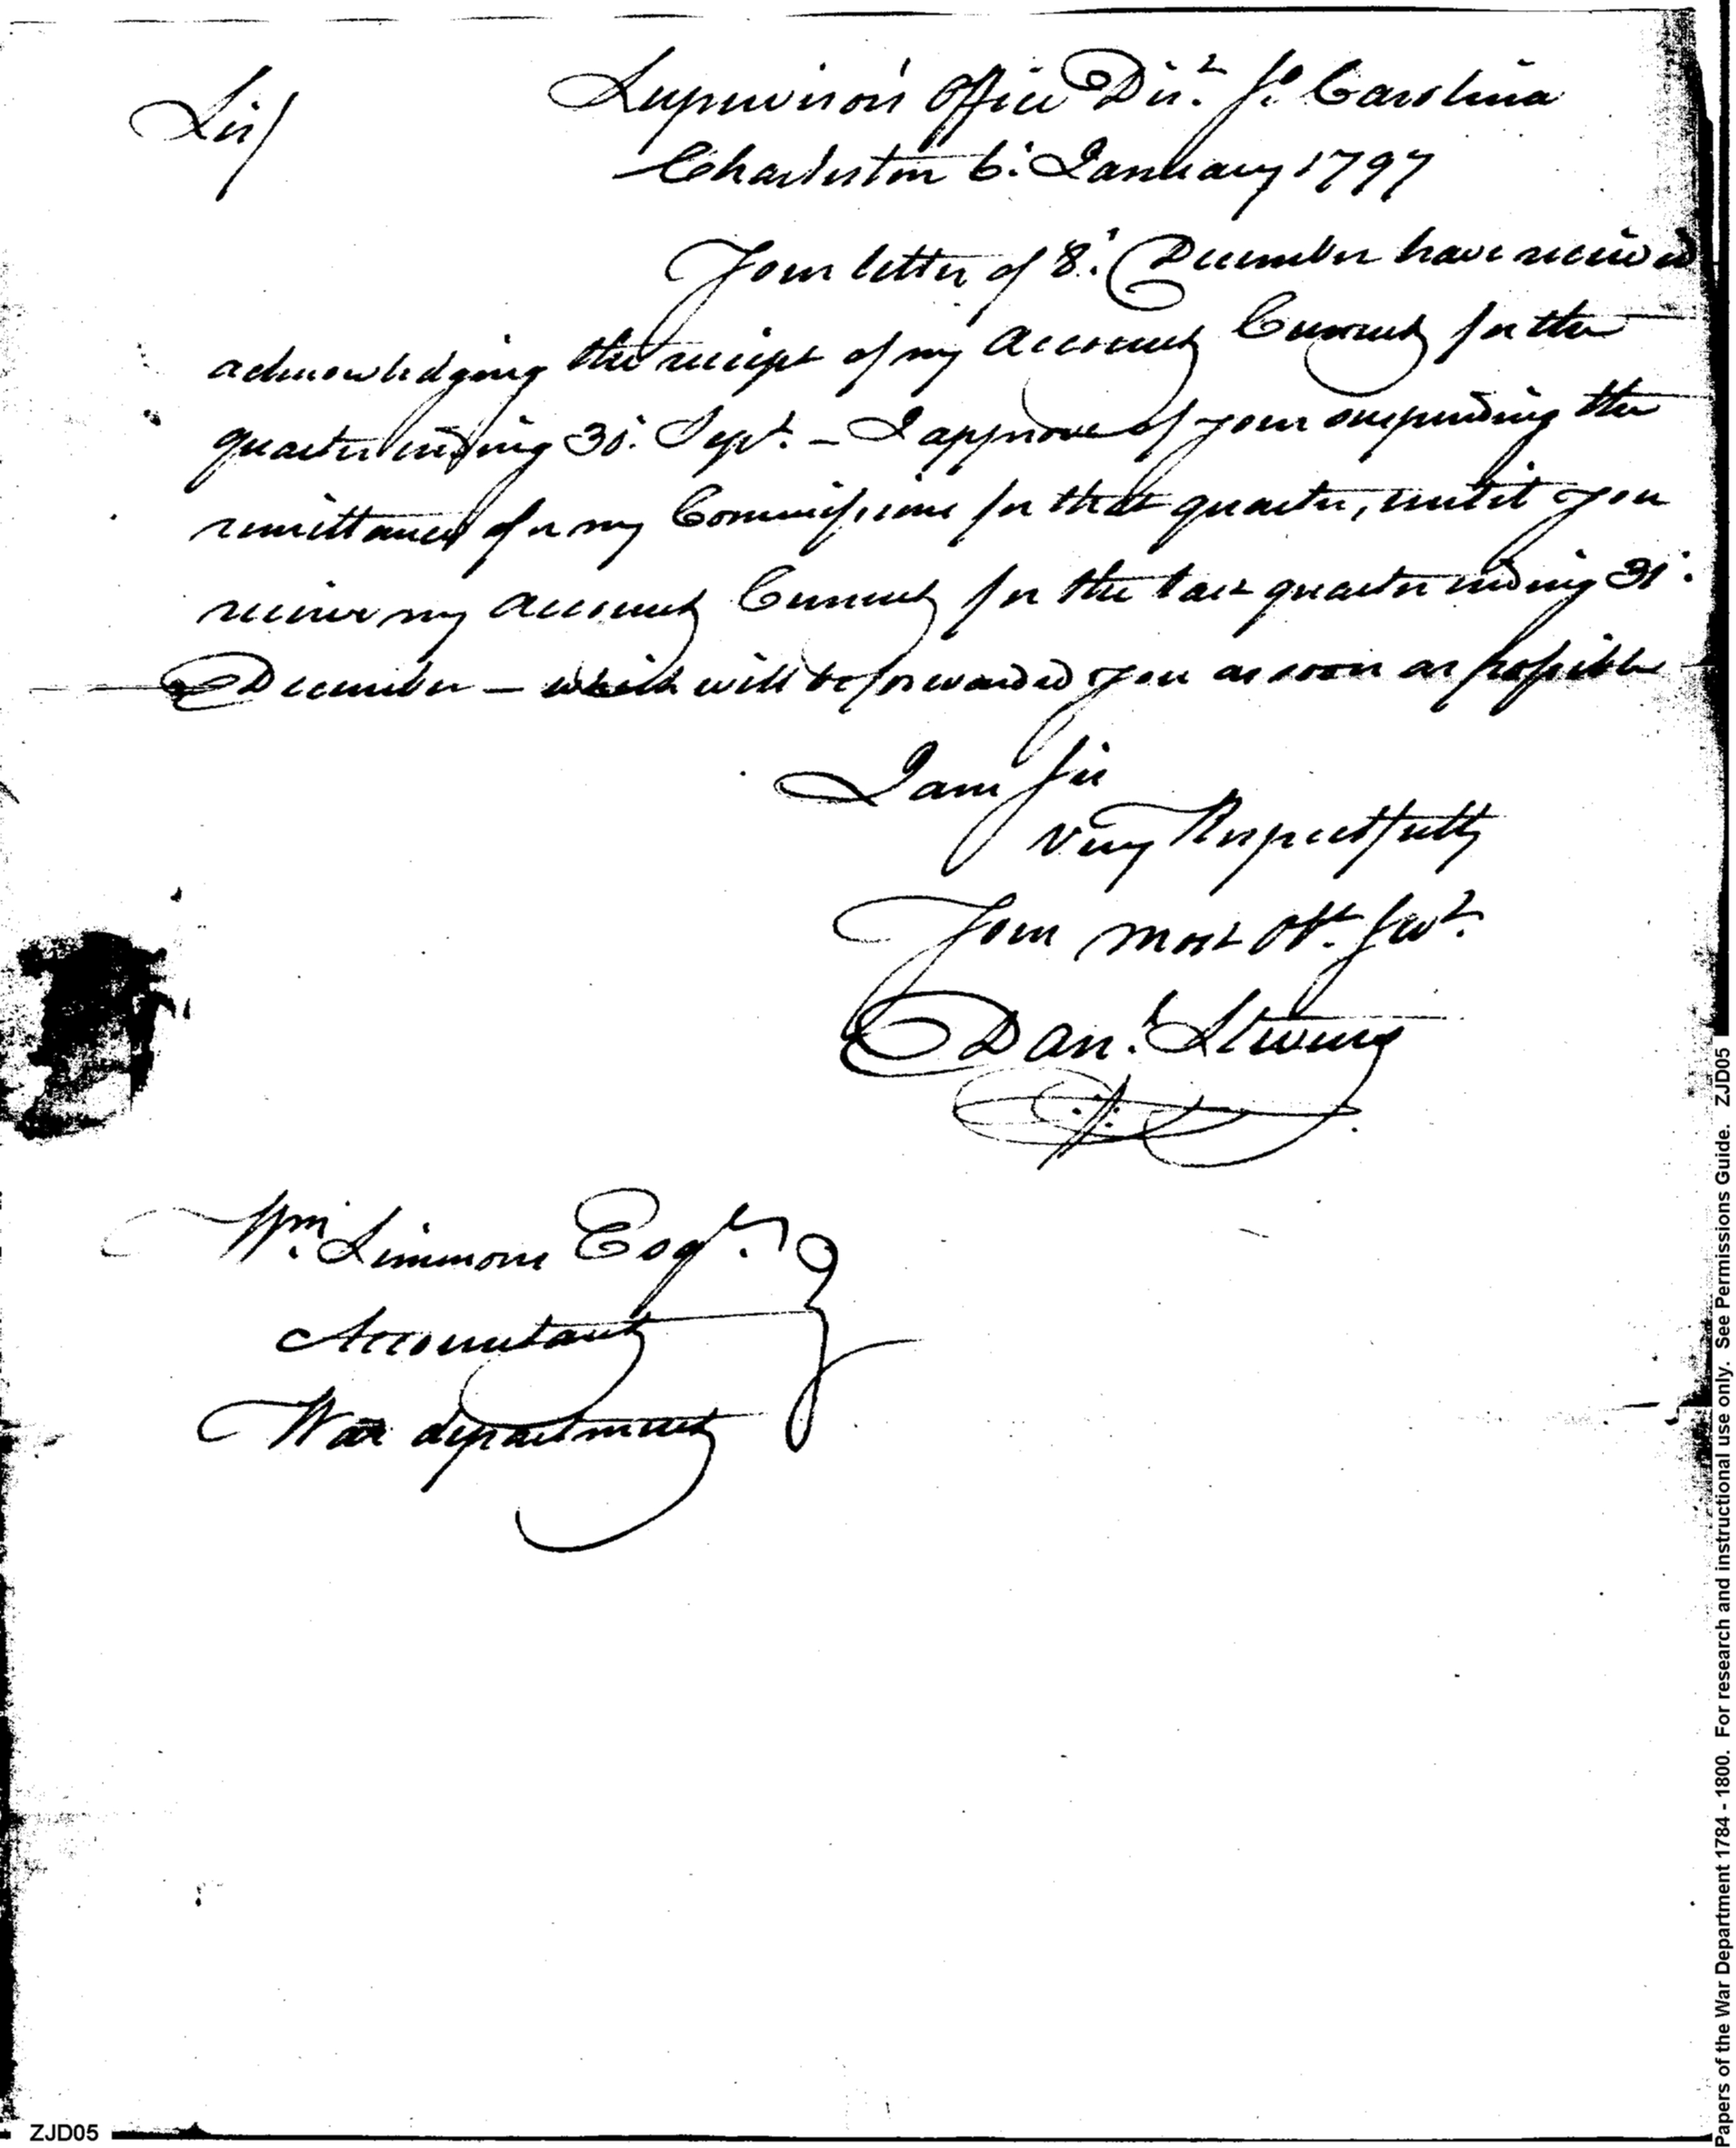 Supervisor's Office Dist. So. Carolina
Sir/
Charleston 6th January 1797
Your letter of 8th December have received
acknowledging the receipt of my Account Current for the
quarter ending 30th Sept. – I approve of your suspending the
remittance for my Commissions for that quarter, until you
receive my Account Current for the last quarter ending 31st
December – which will be forwarded you as soon as possible
I am Sir
Very Respectfully
Your most Obt. Servt.
Danl. Stevens
Wm. Simmons Esqr.
Accountant
War department
ZJD05
Papers of the War Department 1784 - 1800. For research and instructional use only. See Permissions Guide. ZJD05